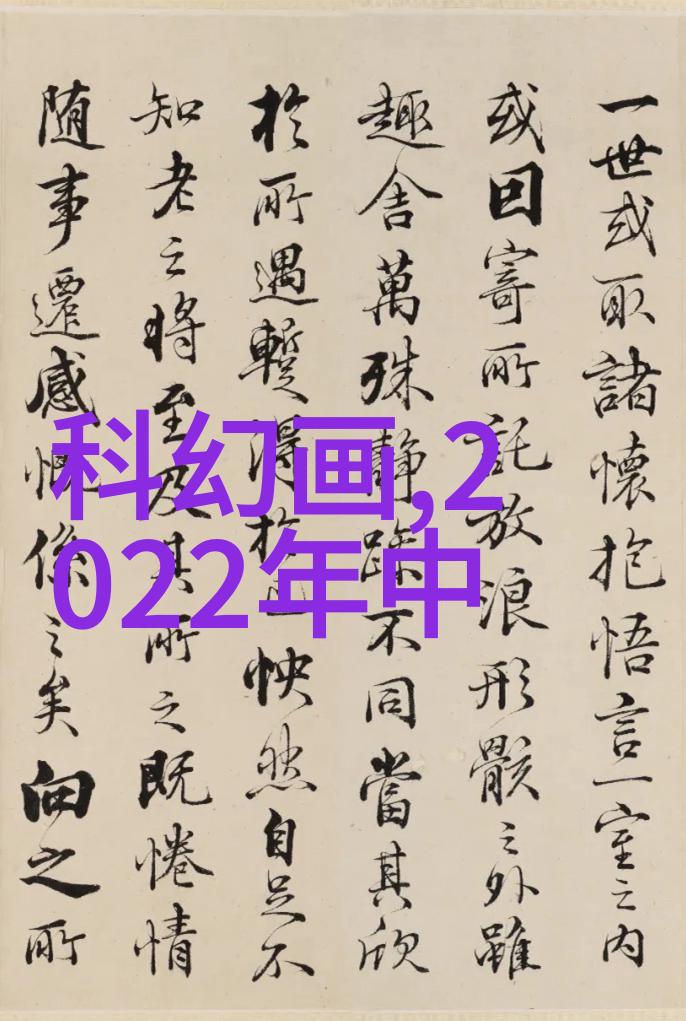 一世或取諸懷抱悟言一室之內
或因寄所託放浪形骸之外雖
趣舍萬殊靜躁不同當其欣
於所遇蹔得於己怏然自足不
知老之將至及其所之既惓情
随事遷感慨係之矣向之所
科幻画,2
022年中